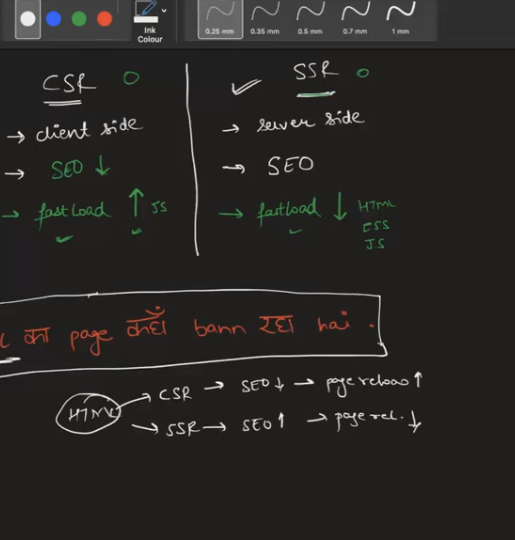 Ink
Colour
0.25 mm 0.35 mm 0.5 mm 0.7 mm 1 mm
CSR
→ client side
→ SEO ↓
→ fast Load ↑ JS
✓ SSR
→ server side
→ SEO
→ fast load ↓ HTML
CSS
JS
का page कहाँ bann रहा hai .
HTML
→ CSR → SEO ↓ → page reload ↑
→ SSR → SEO ↑ → page rel. ↓